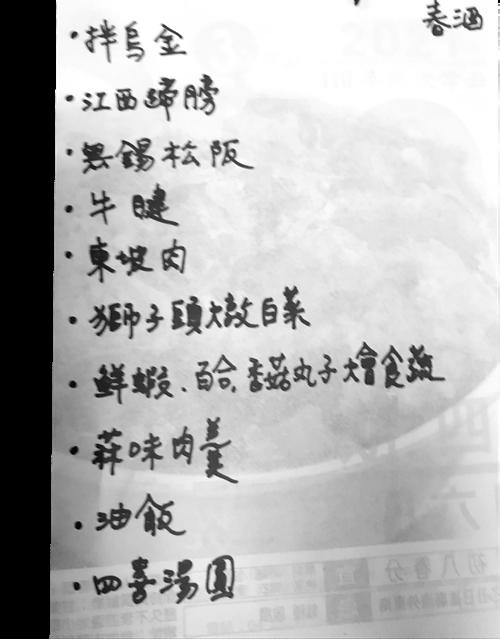 春酒
·拌烏金
·江西蹄膀
·無錫松阪
·牛腱
·東坡肉
·獅子頭燉白菜
·鮮蝦、百合、香菇丸子燴食蔬
·蒜味肉羹
·油飯
·四喜湯圓
初八春分